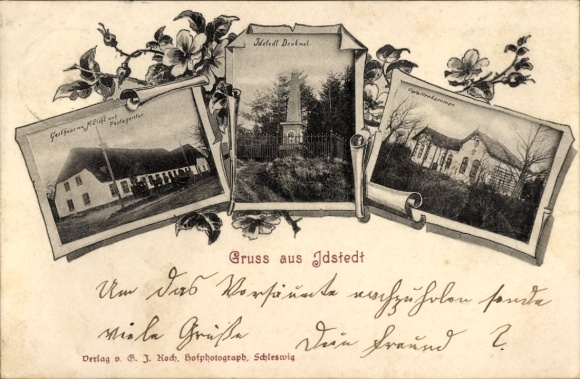 Gasthaus von
Postagentur
Idstedt Denkmal
Gruss aus Idstedt
Um das Versäumte nachzuholen sende
viele Grüße Dein Freund ?
Verlag v. G. J. Koch, Hofphotograph, Schleswig